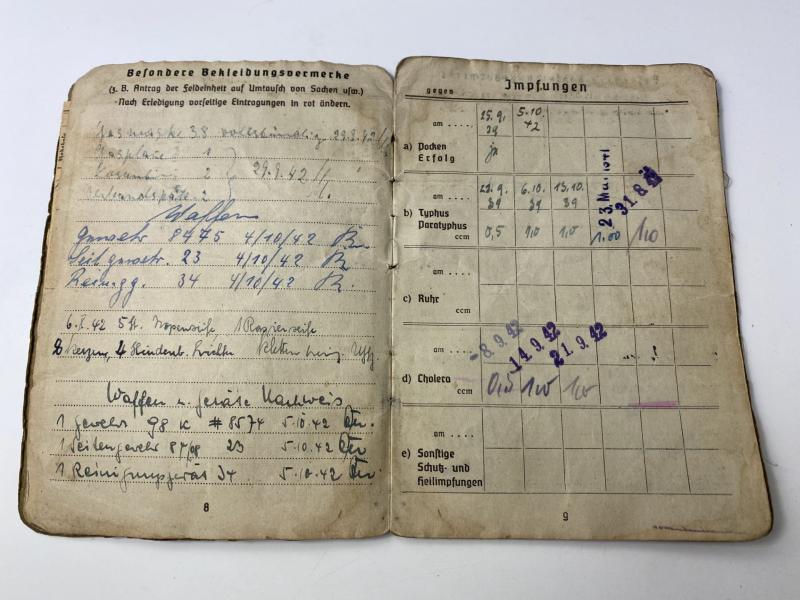 Besondere Bekleidungsvermerke
(z. B. Antrag der Feldeinheit auf Umtausch von Sachen usw.)
Nach Erledigung vorseitige Eintragungen in rot ändern.
Gasmaske 38 29.9.42
Gasplane 1
2 29.9.42
2
Waffen
8475 4/10/42
23 4/10/42
34 4/10/42
6.X.42 5 St. 1 Rasierseife
2 Kerzen, 4 Hindenb. Lichte
Waffen u. Geräte Nachweis
1 Gewehr 98 K # 8574 5.10.42
1 Seitengewehr 84/98 23 5.10.42
1 Reinigungsgerät 34 5.10.42
8
Impfungen
gegen
am .... 25.9. 39 5.10. 42
a) Pocken
Erfolg ja
am .... 6.10. 39 13.10. 39 23. Mai 1941 31.8.
b) Typhus
Paratyphus
ccm 0,5 1,0 1,0 1.00 1,0
am ....
c) Ruhr
ccm
am .... -8.9.42 14.9.42 21.9.42
d) Cholera
ccm 0,5 1,0 1,0
am ....
e) Sonstige
Schutz- und
Heilimpfungen
9